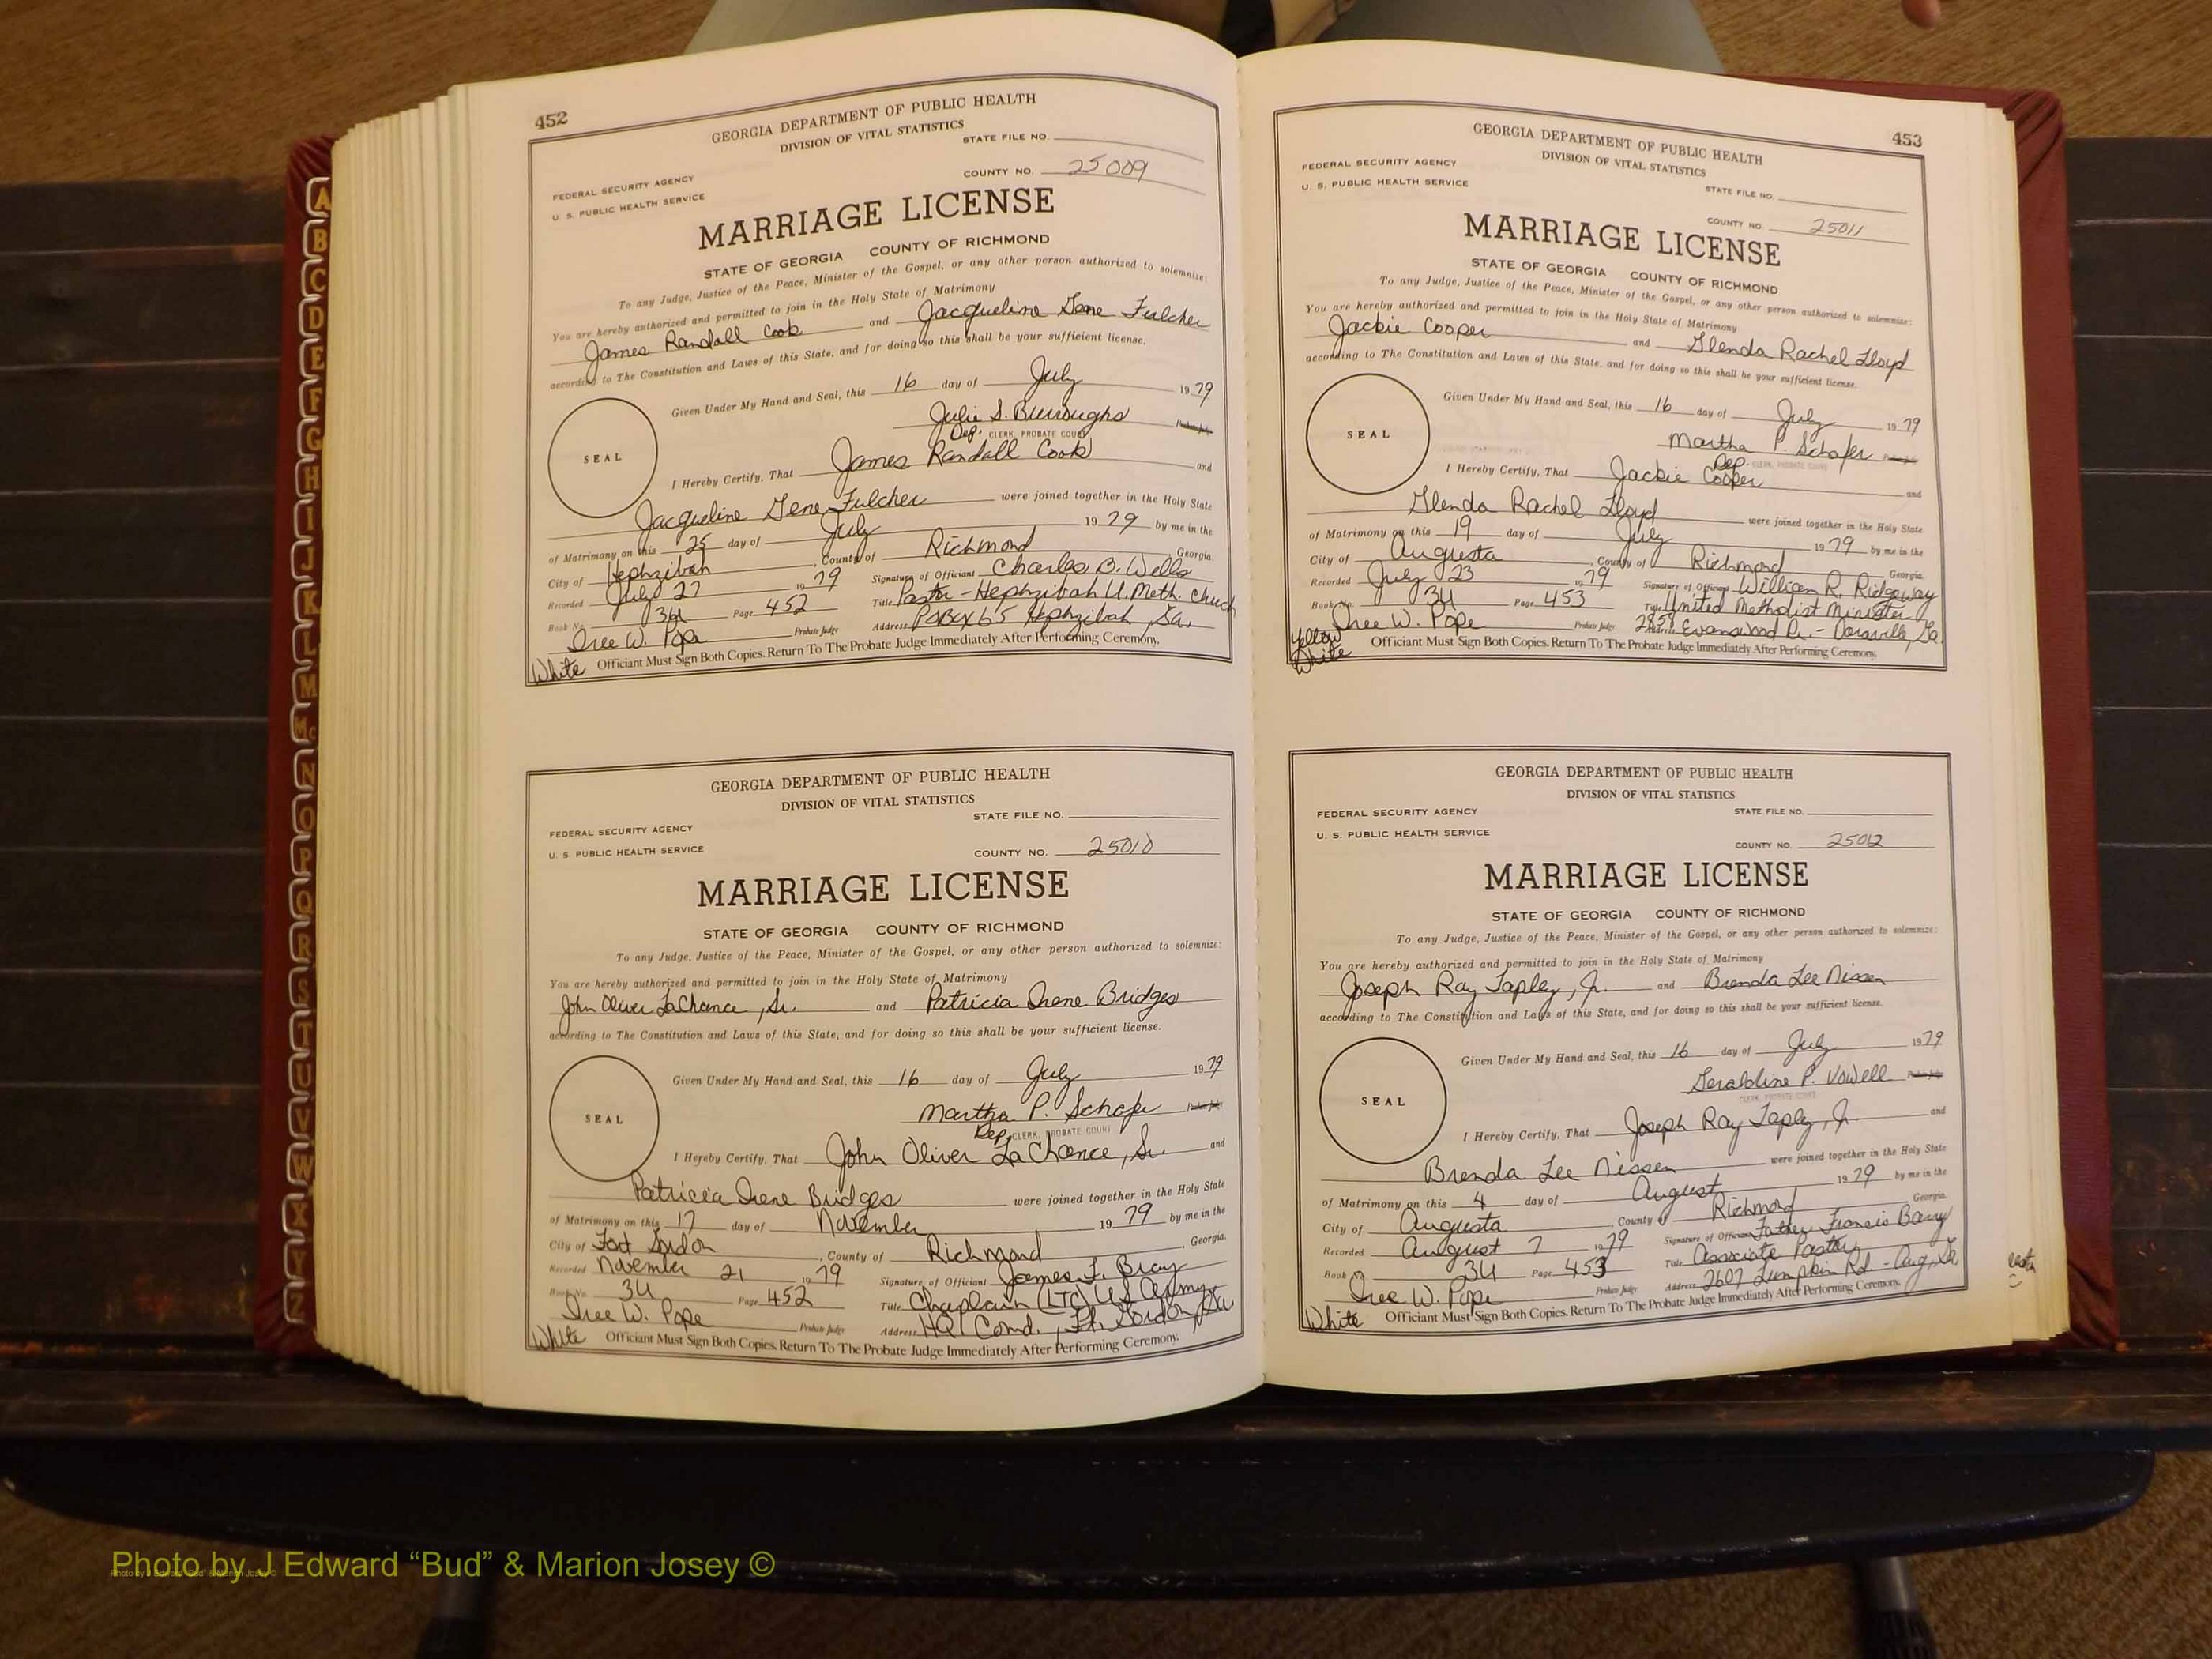 452
GEORGIA DEPARTMENT OF PUBLIC HEALTH
DIVISION OF VITAL STATISTICS
STATE FILE NO.
FEDERAL SECURITY AGENCY
COUNTY NO. 25009
U. S. PUBLIC HEALTH SERVICE
MARRIAGE LICENSE
STATE OF GEORGIA COUNTY OF RICHMOND
To any Judge, Justice of the Peace, Minister of the Gospel, or any other person authorized to solemnize:
You are hereby authorized and permitted to join in the Holy State of Matrimony
James Randall Cook and Jacqueline Gene Fulcher
according to The Constitution and Laws of this State, and for doing so this shall be your sufficient license.
Given Under My Hand and Seal, this 16 day of July 1979
Julie S. Burroughs Probate Judge
SEAL
Dep. CLERK, PROBATE COURT
I Hereby Certify, That James Randall Cook and
Jacqueline Gene Fulcher were joined together in the Holy State
of Matrimony on this 25 day of July 1979 by me in the
City of Hephzibah, County of Richmond Georgia.
Recorded July 27 1979 Signature of Officiant Charles B. Wells
Book No. 34 Page 452 Title Pastor - Hephzibah U. Meth. Church
Iree W. Pope Probate Judge Address P.O. Box 65 Hephzibah, Ga.
White Officiant Must Sign Both Copies. Return To The Probate Judge Immediately After Performing Ceremony.
GEORGIA DEPARTMENT OF PUBLIC HEALTH
DIVISION OF VITAL STATISTICS
STATE FILE NO.
FEDERAL SECURITY AGENCY
U. S. PUBLIC HEALTH SERVICE
COUNTY NO. 25010
MARRIAGE LICENSE
STATE OF GEORGIA COUNTY OF RICHMOND
To any Judge, Justice of the Peace, Minister of the Gospel, or any other person authorized to solemnize:
You are hereby authorized and permitted to join in the Holy State of Matrimony
John Oliver LaChance, Sr. and Patricia Irene Bridges
according to The Constitution and Laws of this State, and for doing so this shall be your sufficient license.
Given Under My Hand and Seal, this 16 day of July 1979
Martha P. Schafer Probate Judge
SEAL
Dep. CLERK, PROBATE COURT
I Hereby Certify, That John Oliver LaChance, Sr. and
Patricia Irene Bridges were joined together in the Holy State
of Matrimony on this 17 day of November 1979 by me in the
City of Fort Gordon, County of Richmond, Georgia.
Recorded November 21 1979 Signature of Officiant James F. Bray
Book No. 34 Page 452 Title Chaplain (LTC) US Army
Iree W. Pope Probate Judge Address HQ Comd., Ft. Gordon, Ga
White Officiant Must Sign Both Copies. Return To The Probate Judge Immediately After Performing Ceremony.
453
GEORGIA DEPARTMENT OF PUBLIC HEALTH
DIVISION OF VITAL STATISTICS
FEDERAL SECURITY AGENCY
U. S. PUBLIC HEALTH SERVICE
STATE FILE NO.
COUNTY NO. 25011
MARRIAGE LICENSE
STATE OF GEORGIA COUNTY OF RICHMOND
To any Judge, Justice of the Peace, Minister of the Gospel, or any other person authorized to solemnize:
You are hereby authorized and permitted to join in the Holy State of Matrimony
Jackie Cooper and Glenda Rachel Lloyd
according to The Constitution and Laws of this State, and for doing so this shall be your sufficient license.
Given Under My Hand and Seal, this 16 day of July 1979
SEAL
Martha P. Schafer Probate Judge
Dep. CLERK, PROBATE COURT
I Hereby Certify, That Jackie Cooper and
Glenda Rachel Lloyd were joined together in the Holy State
of Matrimony on this 19 day of July 1979 by me in the
City of Augusta, County of Richmond Georgia.
Recorded July 23 1979 Signature of Officiant William R. Ridgeway
Book No. 34 Page 453 Title United Methodist Minister
Iree W. Pope Probate Judge Address 2859 Evanswood Dr. - Doraville, Ga.
Yellow
White Officiant Must Sign Both Copies. Return To The Probate Judge Immediately After Performing Ceremony.
GEORGIA DEPARTMENT OF PUBLIC HEALTH
DIVISION OF VITAL STATISTICS
FEDERAL SECURITY AGENCY
STATE FILE NO.
U. S. PUBLIC HEALTH SERVICE
COUNTY NO. 25012
MARRIAGE LICENSE
STATE OF GEORGIA COUNTY OF RICHMOND
To any Judge, Justice of the Peace, Minister of the Gospel, or any other person authorized to solemnize:
You are hereby authorized and permitted to join in the Holy State of Matrimony
Joseph Ray Tapley, Jr. and Brenda Lee Nissen
according to The Constitution and Laws of this State, and for doing so this shall be your sufficient license.
Given Under My Hand and Seal, this 16 day of July 1979
Geraldine P. Vowell Probate Judge
SEAL
CLERK, PROBATE COURT
I Hereby Certify, That Joseph Ray Tapley, Jr. and
Brenda Lee Nissen were joined together in the Holy State
of Matrimony on this 4 day of August 1979 by me in the
City of Augusta, County of Richmond Georgia.
Recorded August 7 1979 Signature of Officiant Father Francis Barry
Book No. 34 Page 453 Title Associate Pastor
Iree W. Pope Probate Judge Address 2607 Lumpkin Rd - Aug, Ga.
White Officiant Must Sign Both Copies. Return To The Probate Judge Immediately After Performing Ceremony.
A
B
C
D
E
F
G
H
I
J
K
L
M
Mc
N
O
P
Q
R
S
T
U
V
W
X
Y
Z
Photo by J Edward “Bud” & Marion Josey ©
Photo by J Edward “Bud” & Marion Josey ©